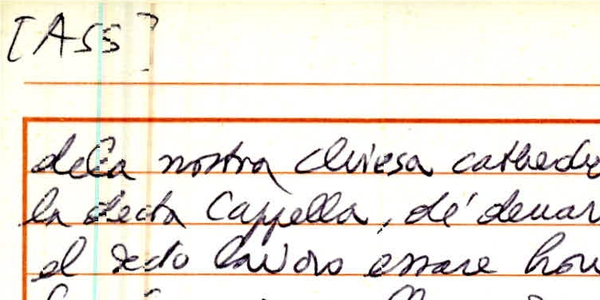 [ASS?
dela nostra chiesa cathedr
la decta Cappella, de' denar
el decto lavoro essare hon